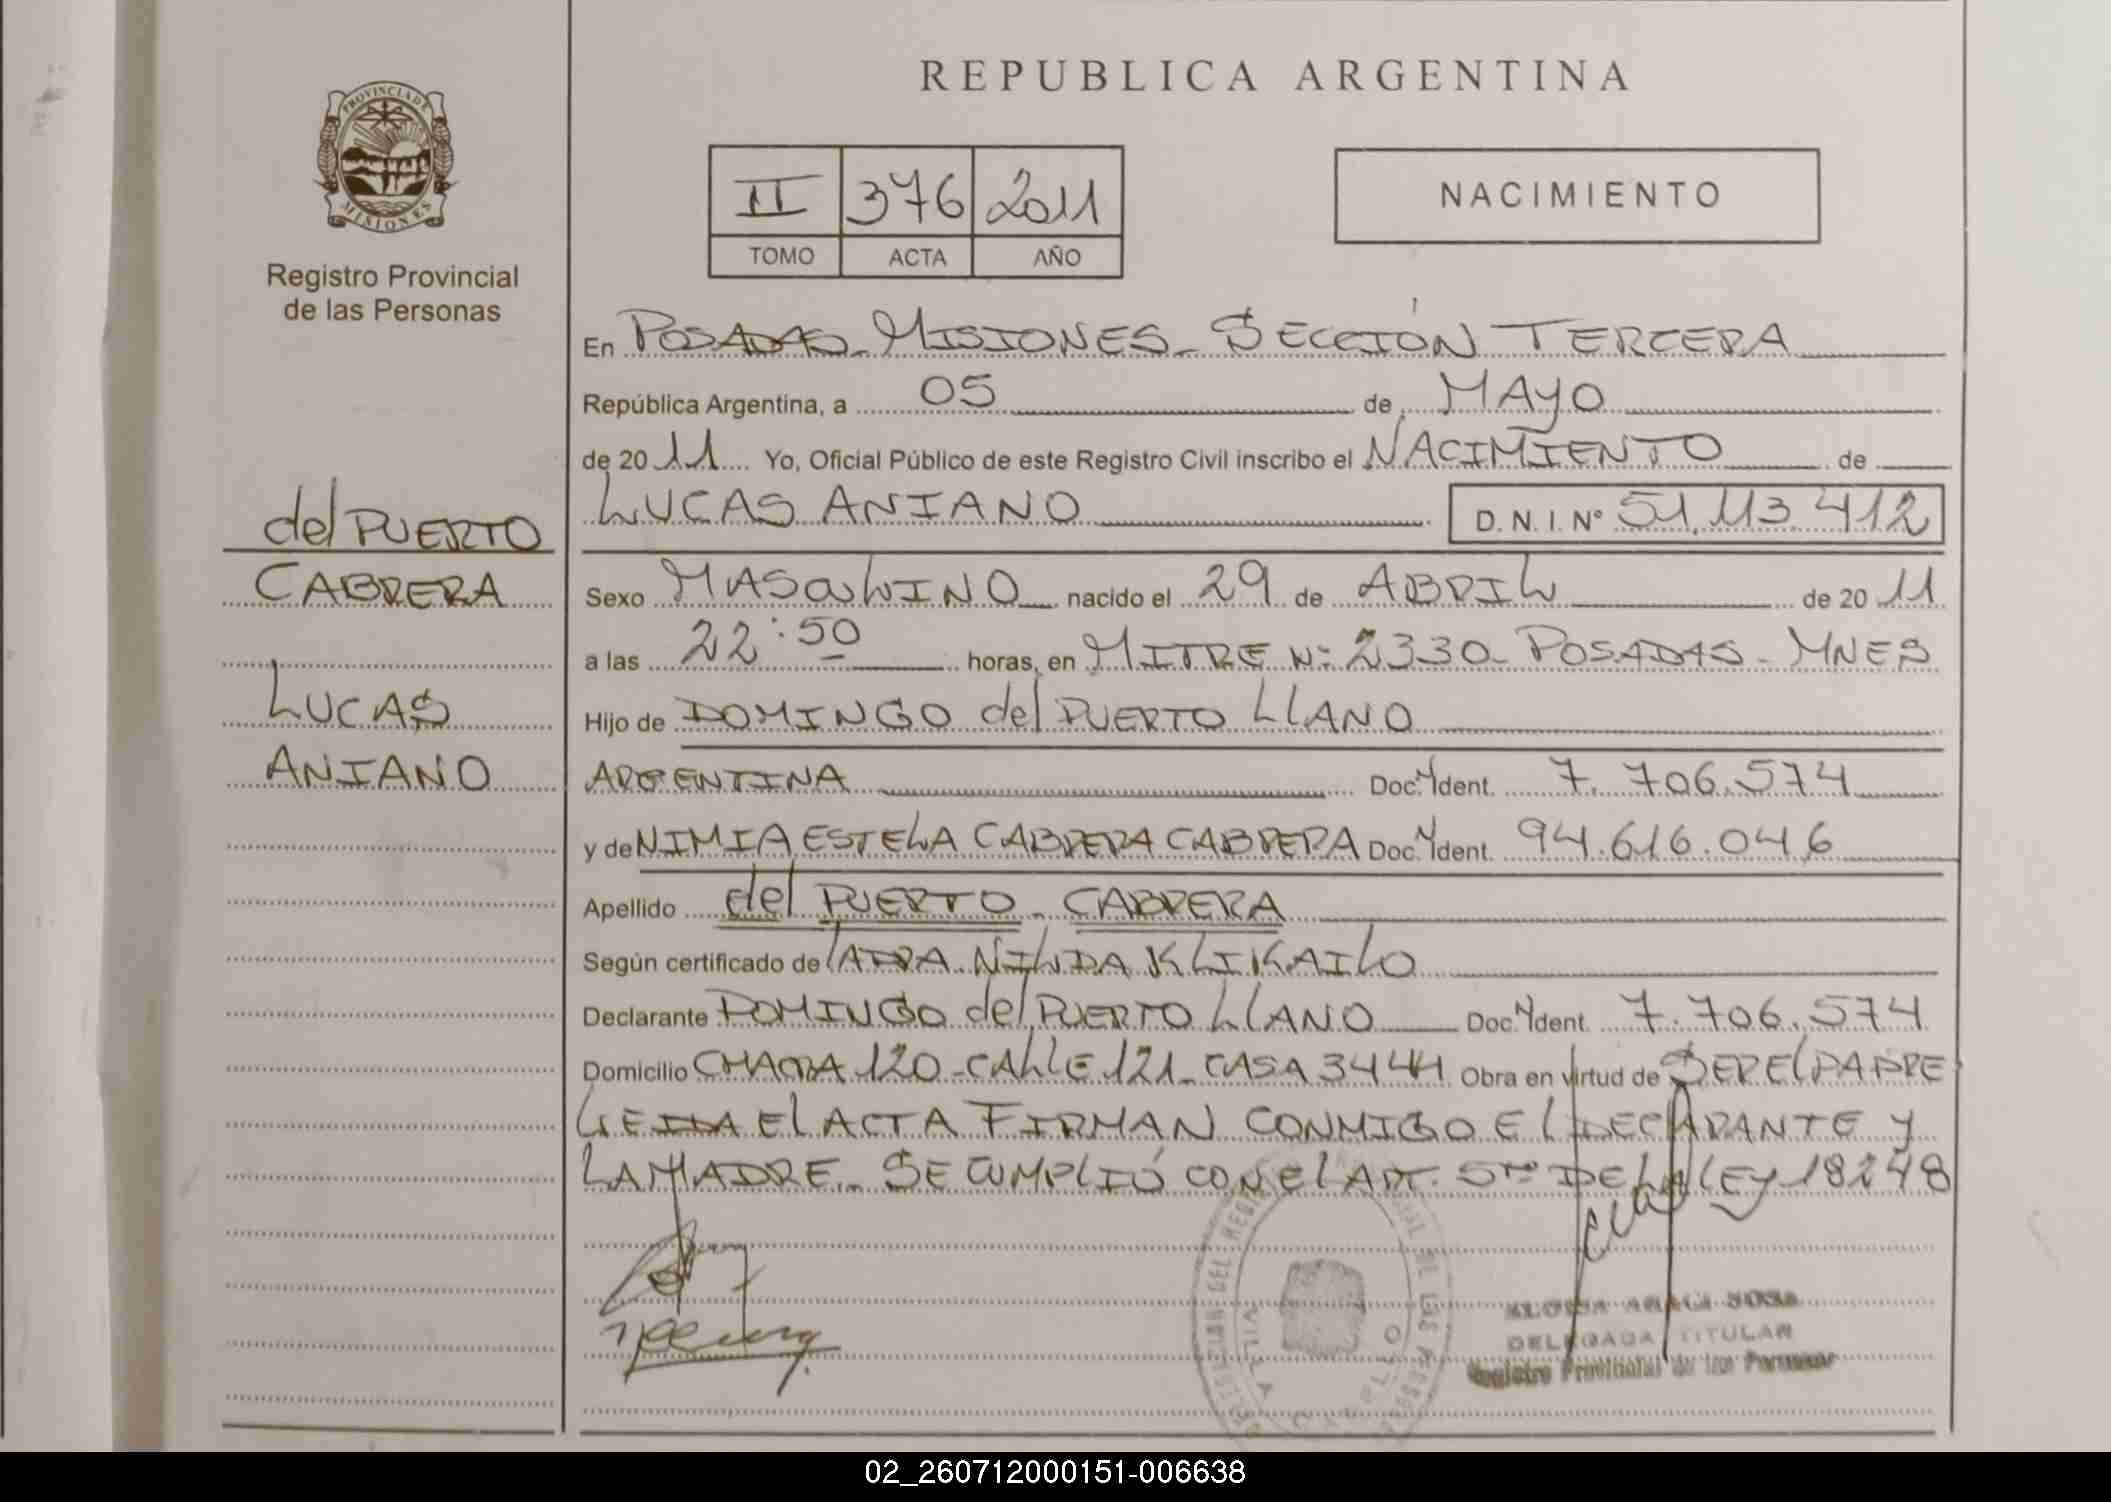 REPUBLICA ARGENTINA
PROVINCIA DE
MISIONES
Registro Provincial
de las Personas
II 376 2011
TOMO ACTA AÑO
NACIMIENTO
del PUERTO
CABRERA
LUCAS
ANIANO
En POSADAS - MISIONES - SECCIÓN TERCERA
República Argentina, a 05 de MAYO
de 2011 Yo, Oficial Público de este Registro Civil inscribo el NACIMIENTO de
LUCAS ANIANO D.N.I. Nº 51.113.412
Sexo MASCULINO nacido el 29 de ABRIL de 2011
a las 22:50 horas, en MITRE Nº 2330 - POSADAS - MNES
Hijo de DOMINGO del PUERTO LLANO
ARGENTINA Doc. Ident. 7.706.574
y de NIMIA ESTELA CABRERA CABRERA Doc. Ident. 94.616.046
Apellido del PUERTO - CABRERA
Según certificado de NILDA KLIKAILO
Declarante DOMINGO del PUERTO LLANO Doc. Ident. 7.706.574
Domicilio CHACRA 120 - CALLE 121 - CASA 3444 Obra en virtud de SER EL PADRE
LEIDA El ACTA FIRMAN CONMIGO El DECLARANTE Y
LA MADRE - SE CUMPLIÓ CON El ART. 5to DE LA LEY 18248
DELEGADA TITULAR
Registro Provincial de las Personas
02_260712000151-006638